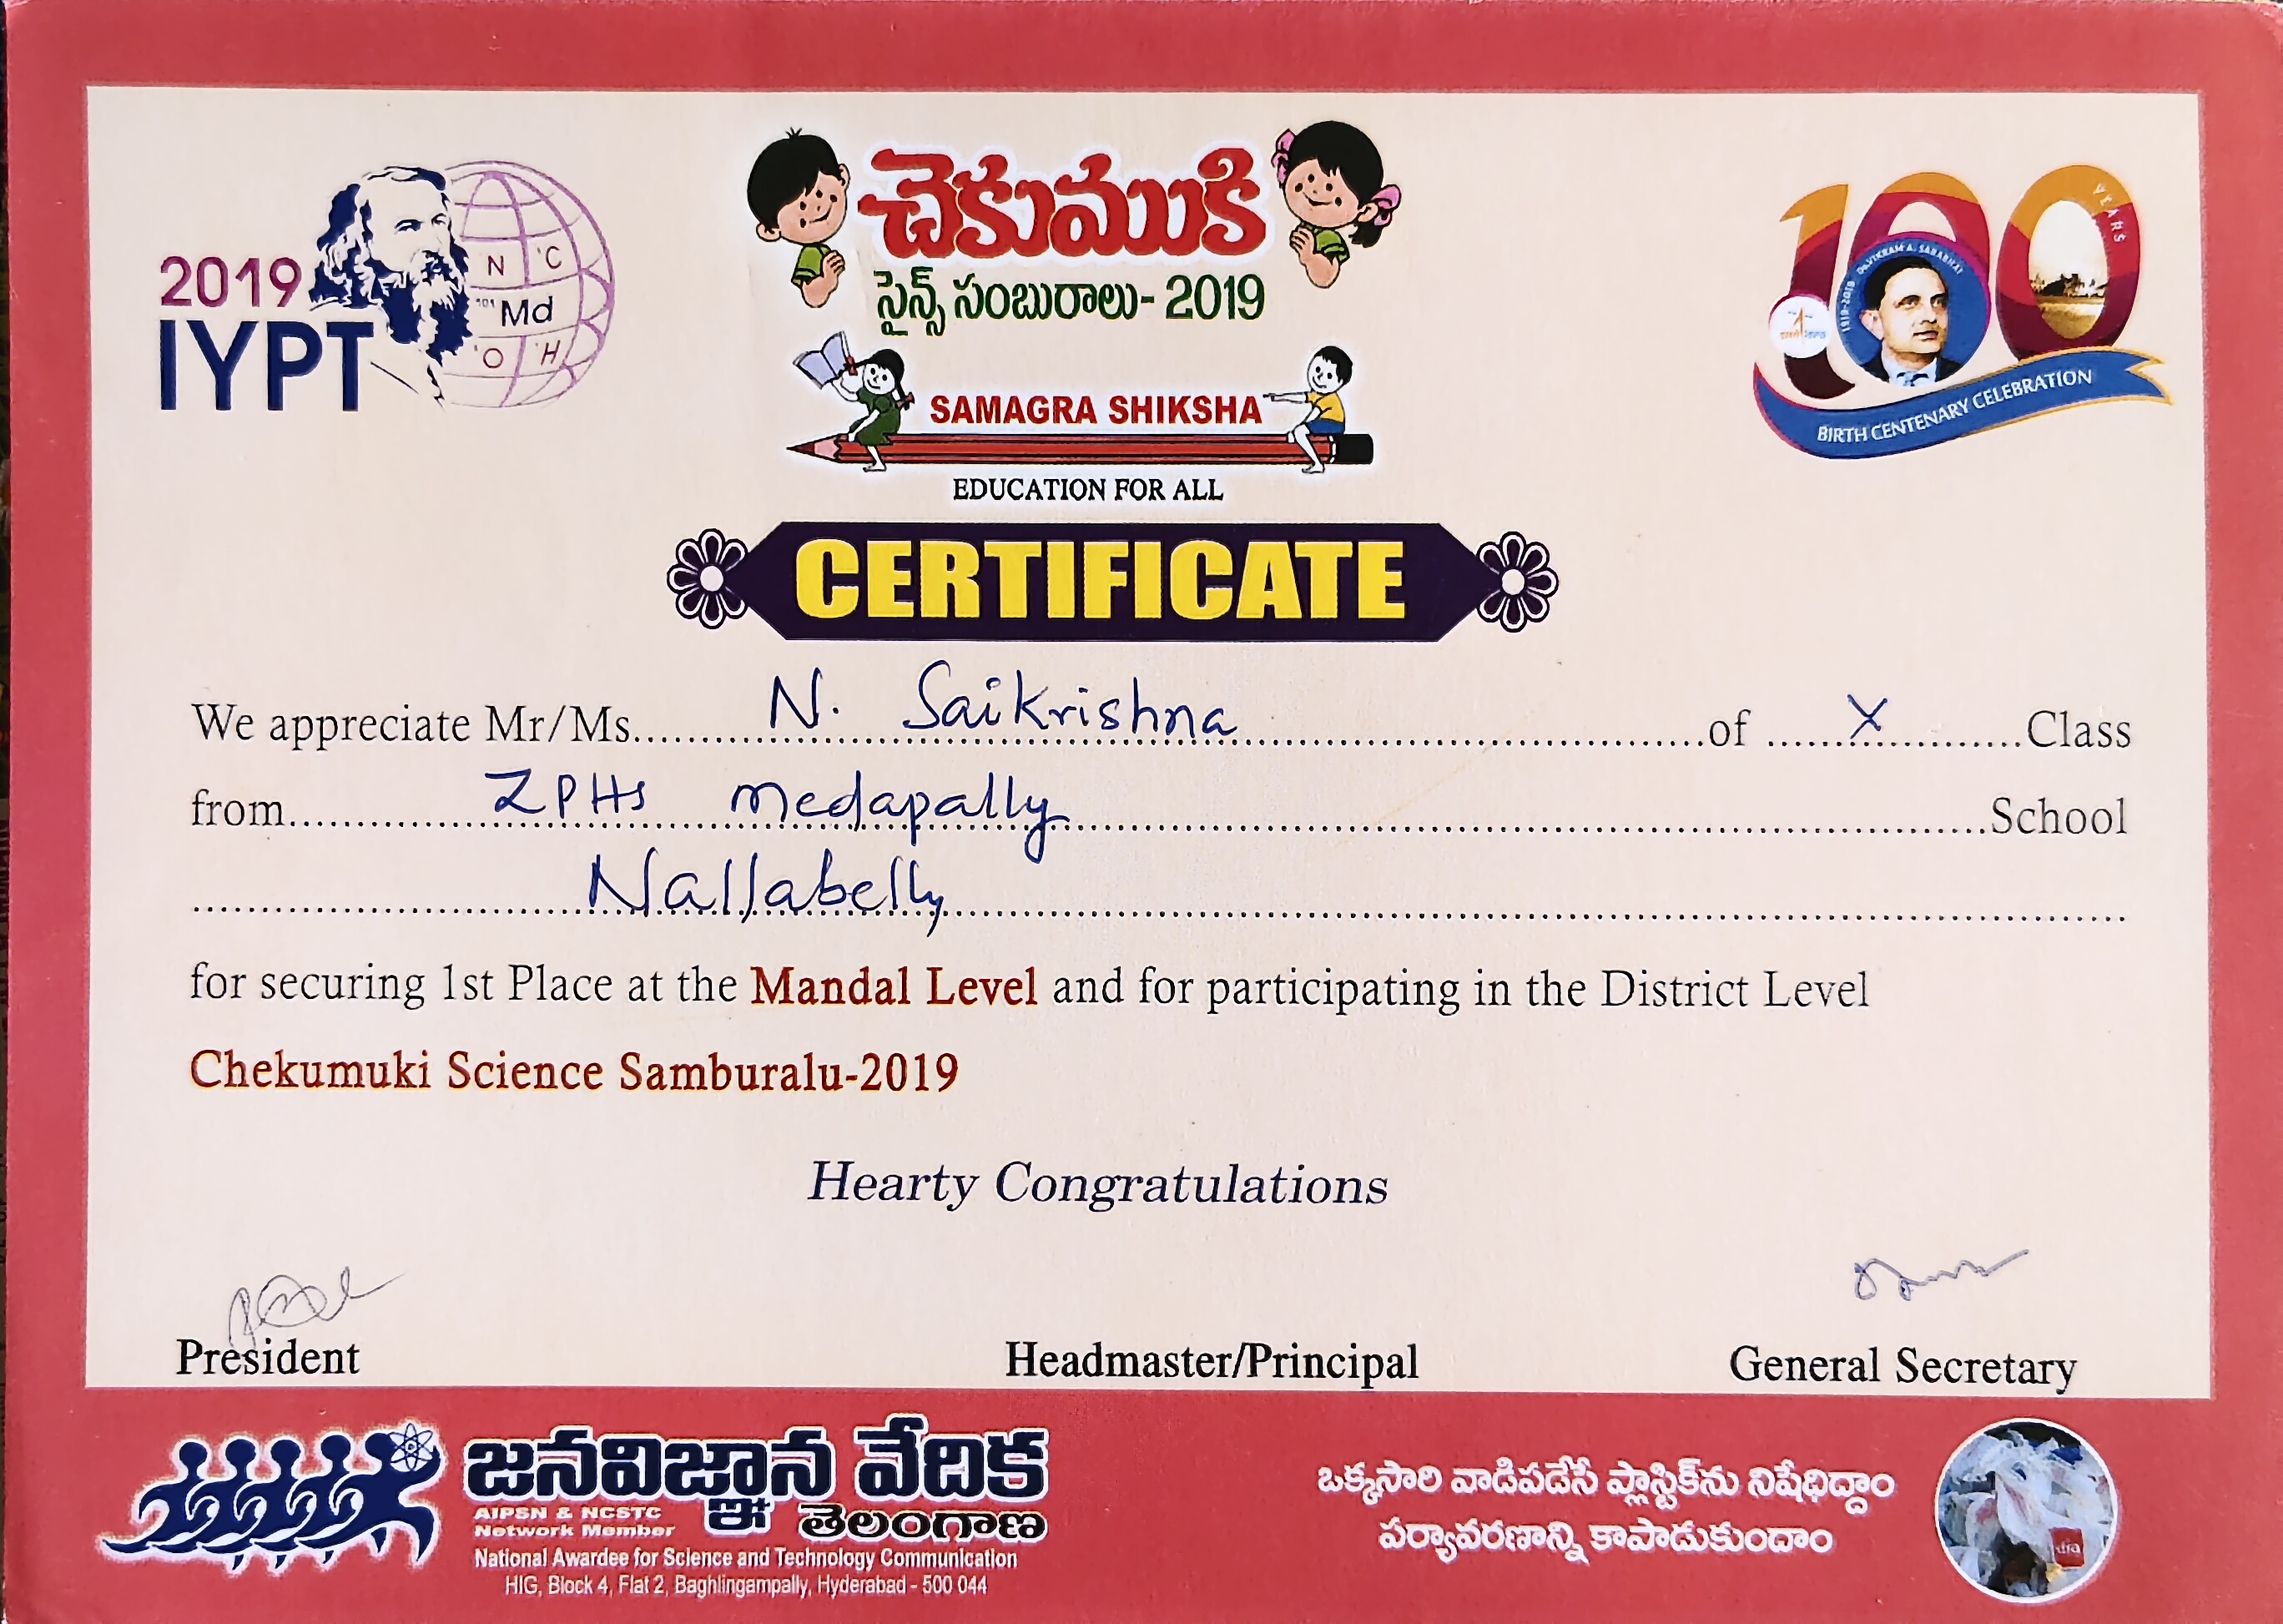 2019
IYPT
N C
101 Md
O H
చెకుముకి
సైన్స్ సంబురాలు- 2019
SAMAGRA SHIKSHA
EDUCATION FOR ALL
100
YEARS
DR. VIKRAM A. SARABHAI
1919-2019
BIRTH CENTENARY CELEBRATION
CERTIFICATE
We appreciate Mr/Ms. N. Saikrishna of X Class
from ZPHS medapally School
Nallabelly
for securing 1st Place at the Mandal Level and for participating in the District Level
Chekumuki Science Samburalu-2019
Hearty Congratulations
President Headmaster/Principal General Secretary
జనవిజ్ఞాన వేదిక
తెలంగాణ
AIPSN & NCSTC
Network Member
National Awardee for Science and Technology Communication
HIG, Block 4, Flat 2, Baghlingampally, Hyderabad - 500 044
ఒక్కసారి వాడిపడేసే ప్లాస్టిక్‌ను నిషేధిద్దాం
పర్యావరణాన్ని కాపాడుకుందాం